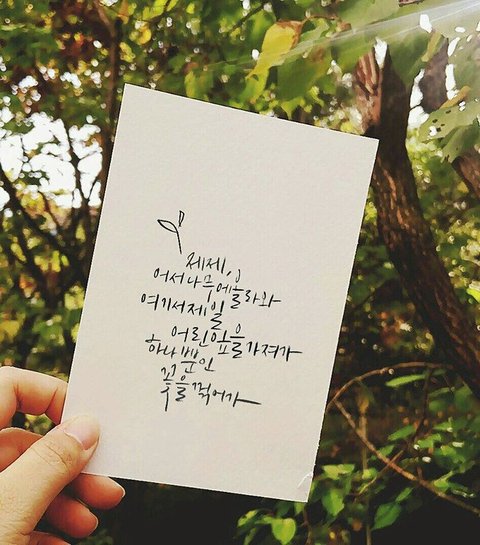 제제,
어서 나무에 올라와
여기서 제일
어린 잎을 가져가
하나뿐인
꽃을 꺾어가